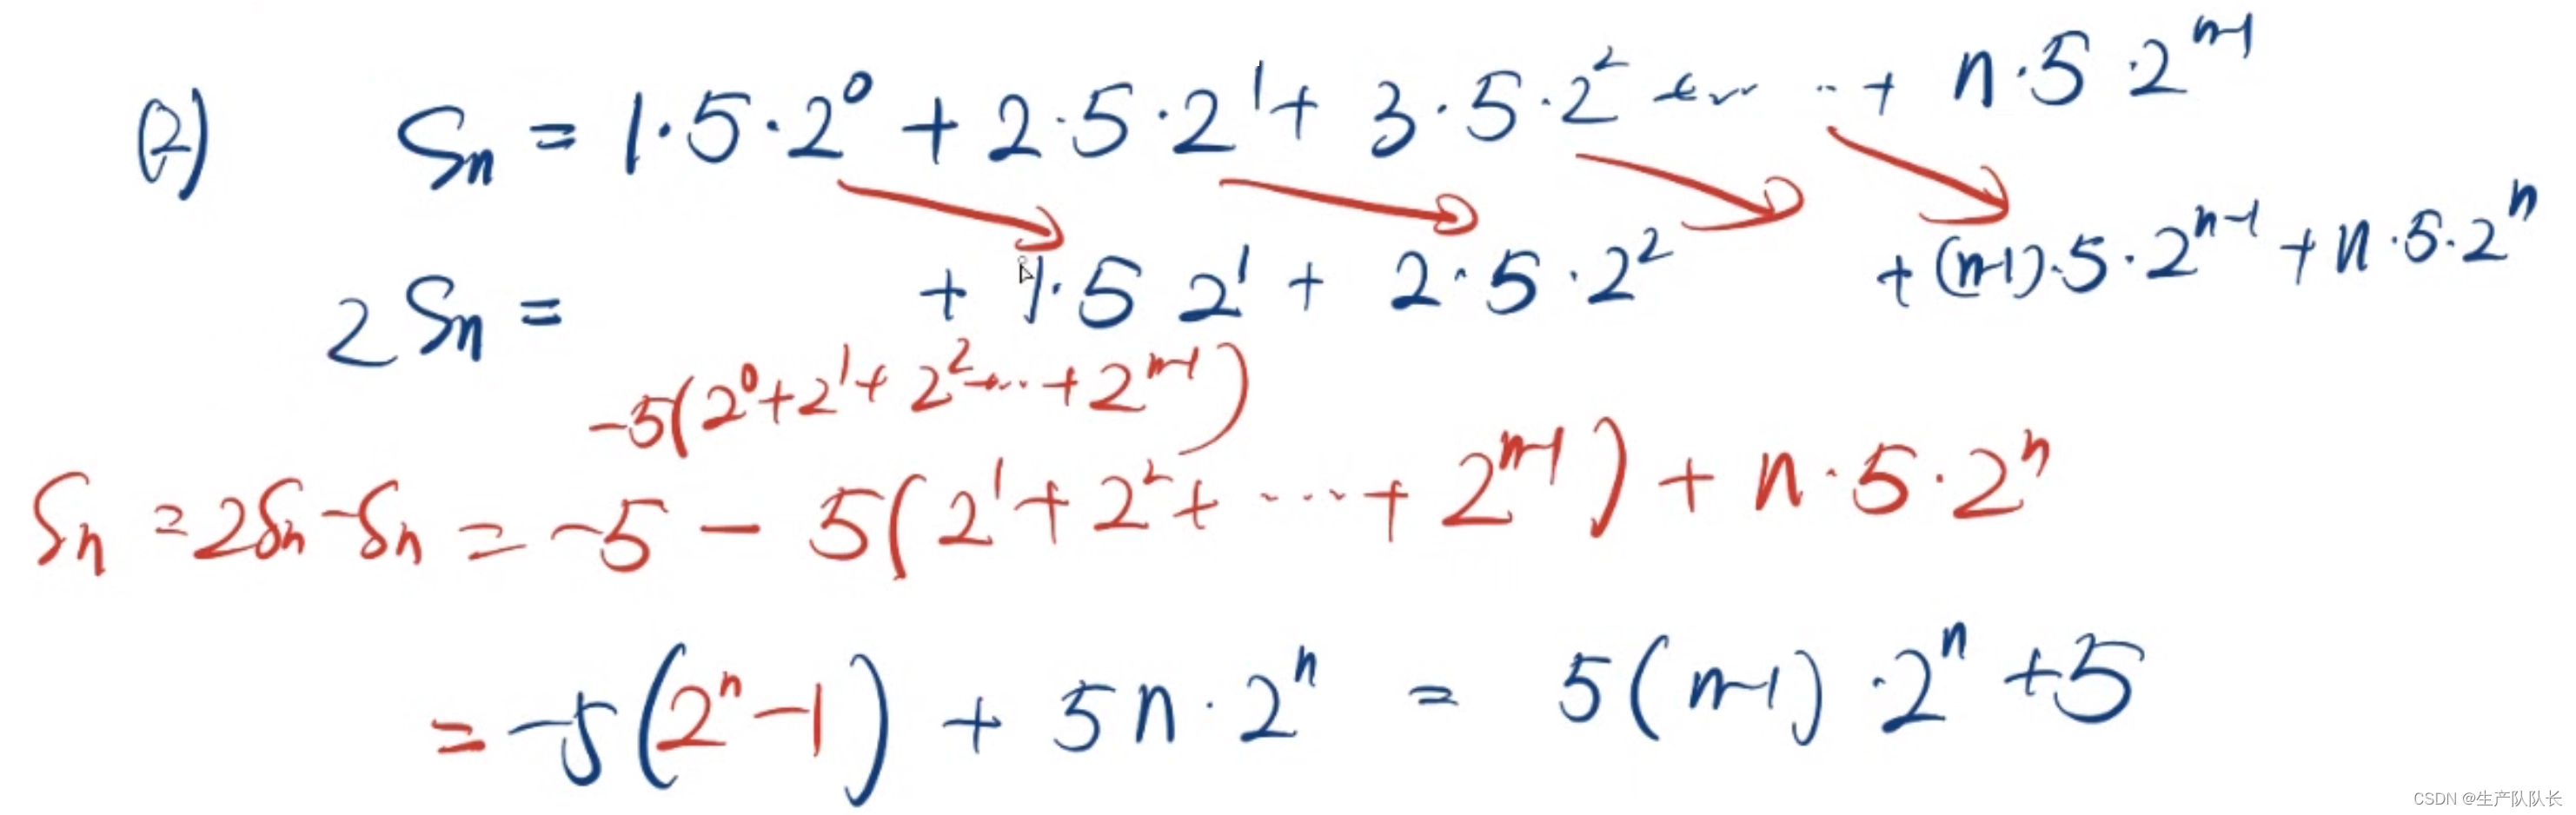 (2) Sn = 1·5·2⁰ + 2·5·2¹ + 3·5·2² + ··· ·· + n·5·2ⁿ⁻¹
2Sn = + 1·5 2¹ + 2·5·2² + (n-1)·5·2ⁿ⁻¹ + n·5·2ⁿ
-5(2⁰+2¹+2²+···+2ⁿ⁻¹)
Sn = 2Sn-Sn = -5 - 5(2¹+2²+ ··· + 2ⁿ⁻¹) + n·5·2ⁿ
= -5(2ⁿ-1) + 5n·2ⁿ = 5(n-1)·2ⁿ+5
CSDN @生产队队长